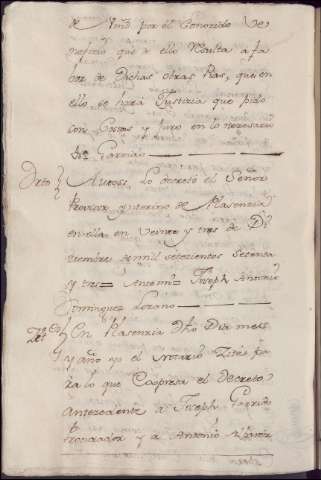 de Vmd. por el Conozido Ve-
neficio que de ello Resulta a fa-
bor de Dichas obras Pias, que en
ello se hará Justicia que pido
con Costas y Juro en lo necesario
Autos: Lo decretó el Señor
Provisor interino de Plasencia
en ella en Veinte y tres de D
ziembre de mil setezientos setenta
y tres = Antemi = Joseph Antonio
Dominguez Lozano
En Plasenzia dho Dia mes
y año yo el Notario Zité pa
ra lo que Expresa el Decreto
Antezedente a Joseph Garrido
y a Antonio